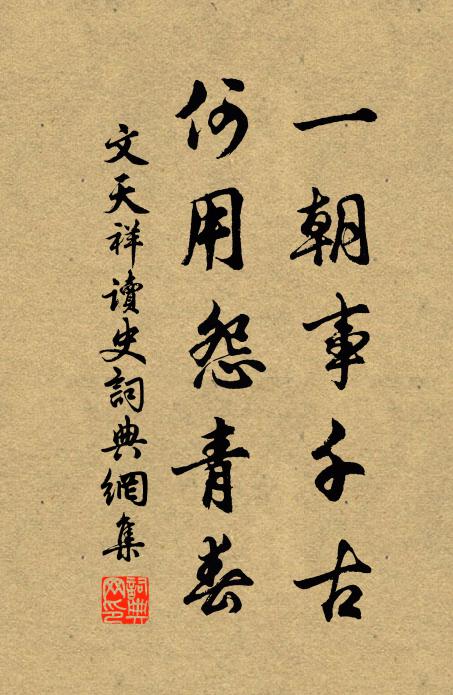 一朝事千古
何用怨青春
文天祥讀史詞典網集
詞典
网印